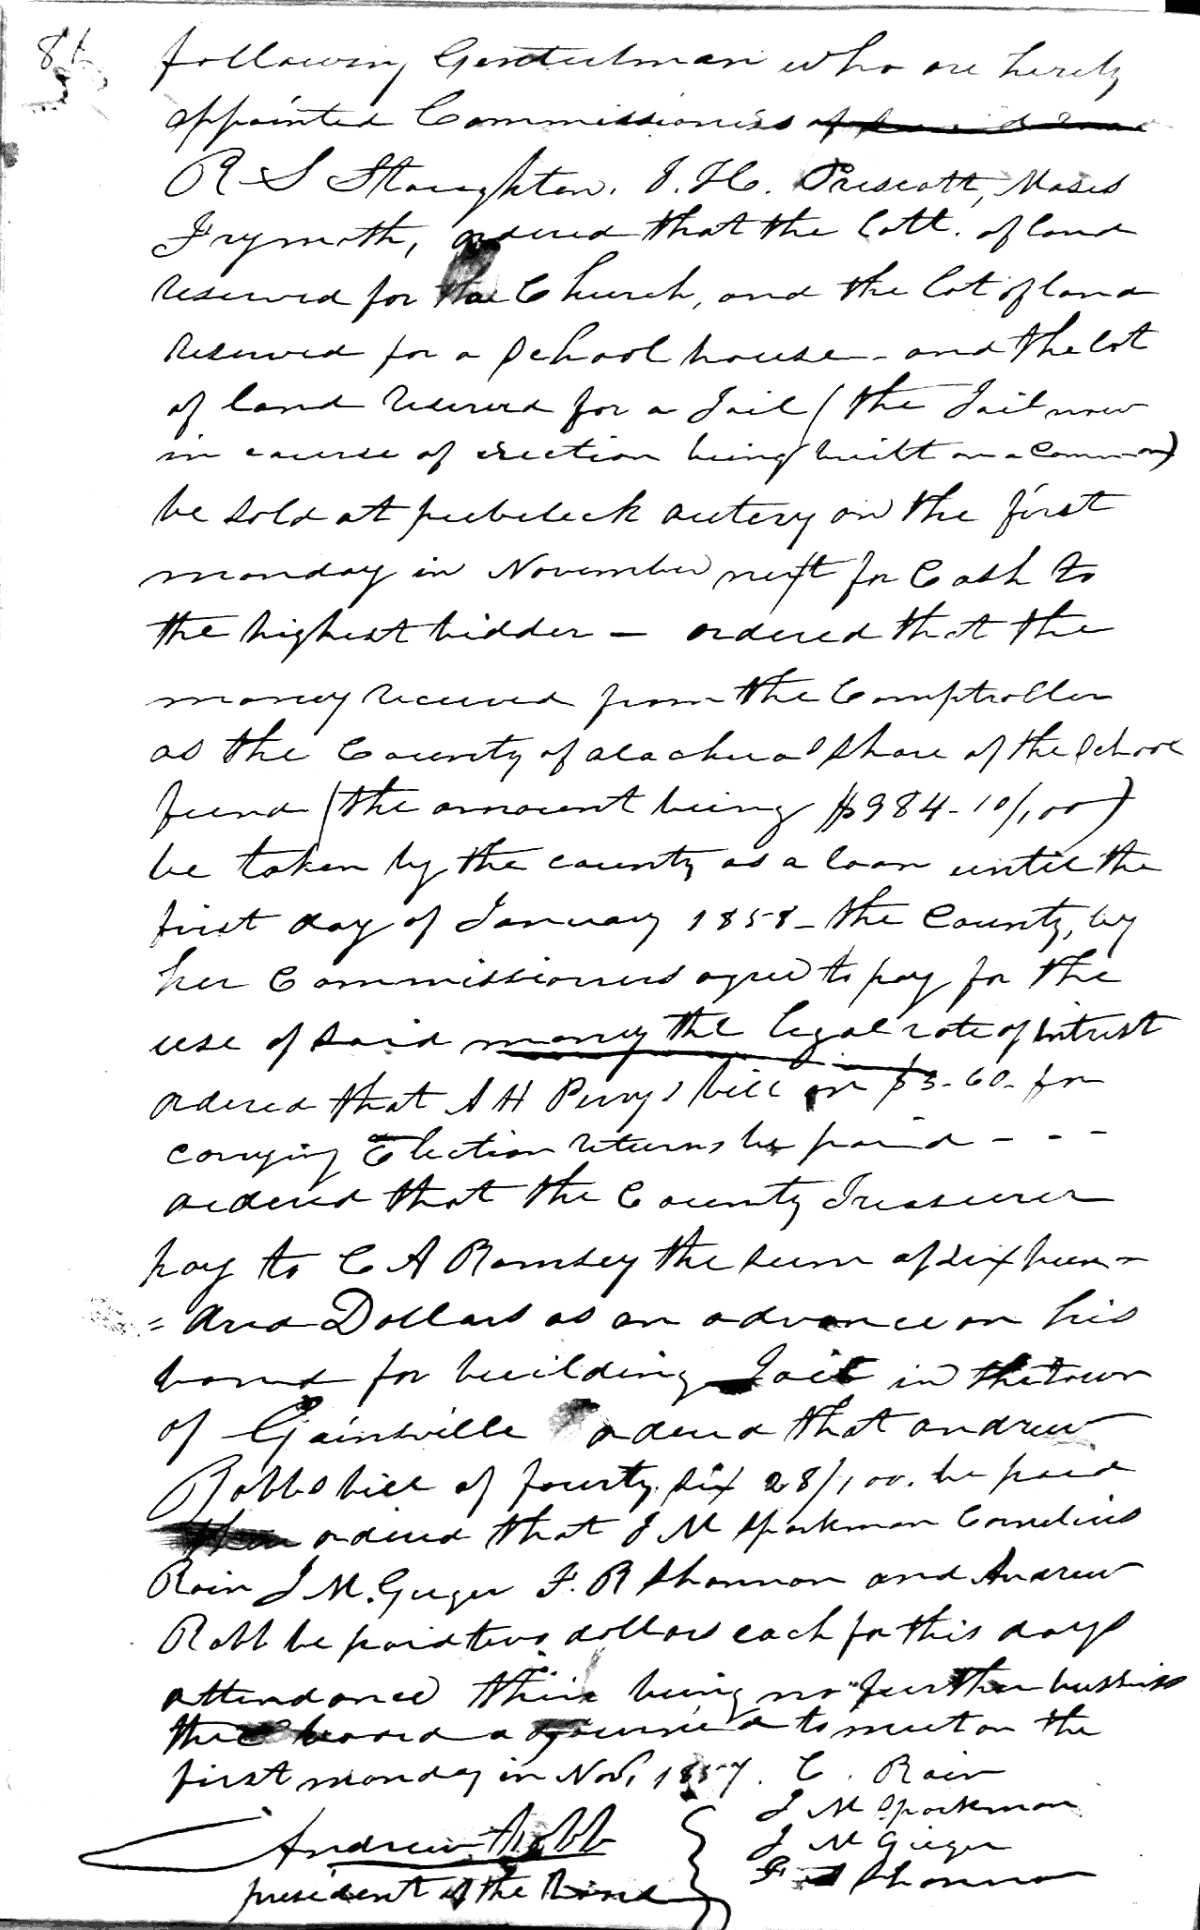 81
following Gentulman who are herely
appointed Commissioniers of
R S Stoughton. J. H. Prescott, Moses
Frymoth, ordered that the Lott. of land
reserved for the Church, and the lot of land
reserved for a School house - and the lot
of land reserved for a Jail (the Jail now
in course of erection being built on a Common)
be sold at publeck outery on the first
monday in November next for Cash to
the highest bidder - ordered that the
money received from the Comptroller
as the County of alachuas share of the School
fund (the amount being $984-10/100)
be taken by the county as a loan until the
first day of January 1858 - the County, by
her Commissioners agree to pay for the
use of said money the legal rate of intrest
ordered that A H Perrys bill for $3-60- for
carrying Election returns be paid - - -
ordered that the County Treasurer
pay to C A Ramsey the sum of six hun-
= dred Dollars as an advance on his
bond for building Jail in the town
of Gainsville ordered that andrew
Robbs bill of fourty six 28/100. be paid
ordered that J M Sparkman Cornelius
Rain J M. Geiger F. R Shannon and Andrew
Robb be paid two dollars each for this days
attendance their being no further bussiness
the board ajourned to meet on the
first monday in Nov, 1857. C. Rain
J M Sparkman
Andrew Robb J M Gieger
president of the Board F Shannon